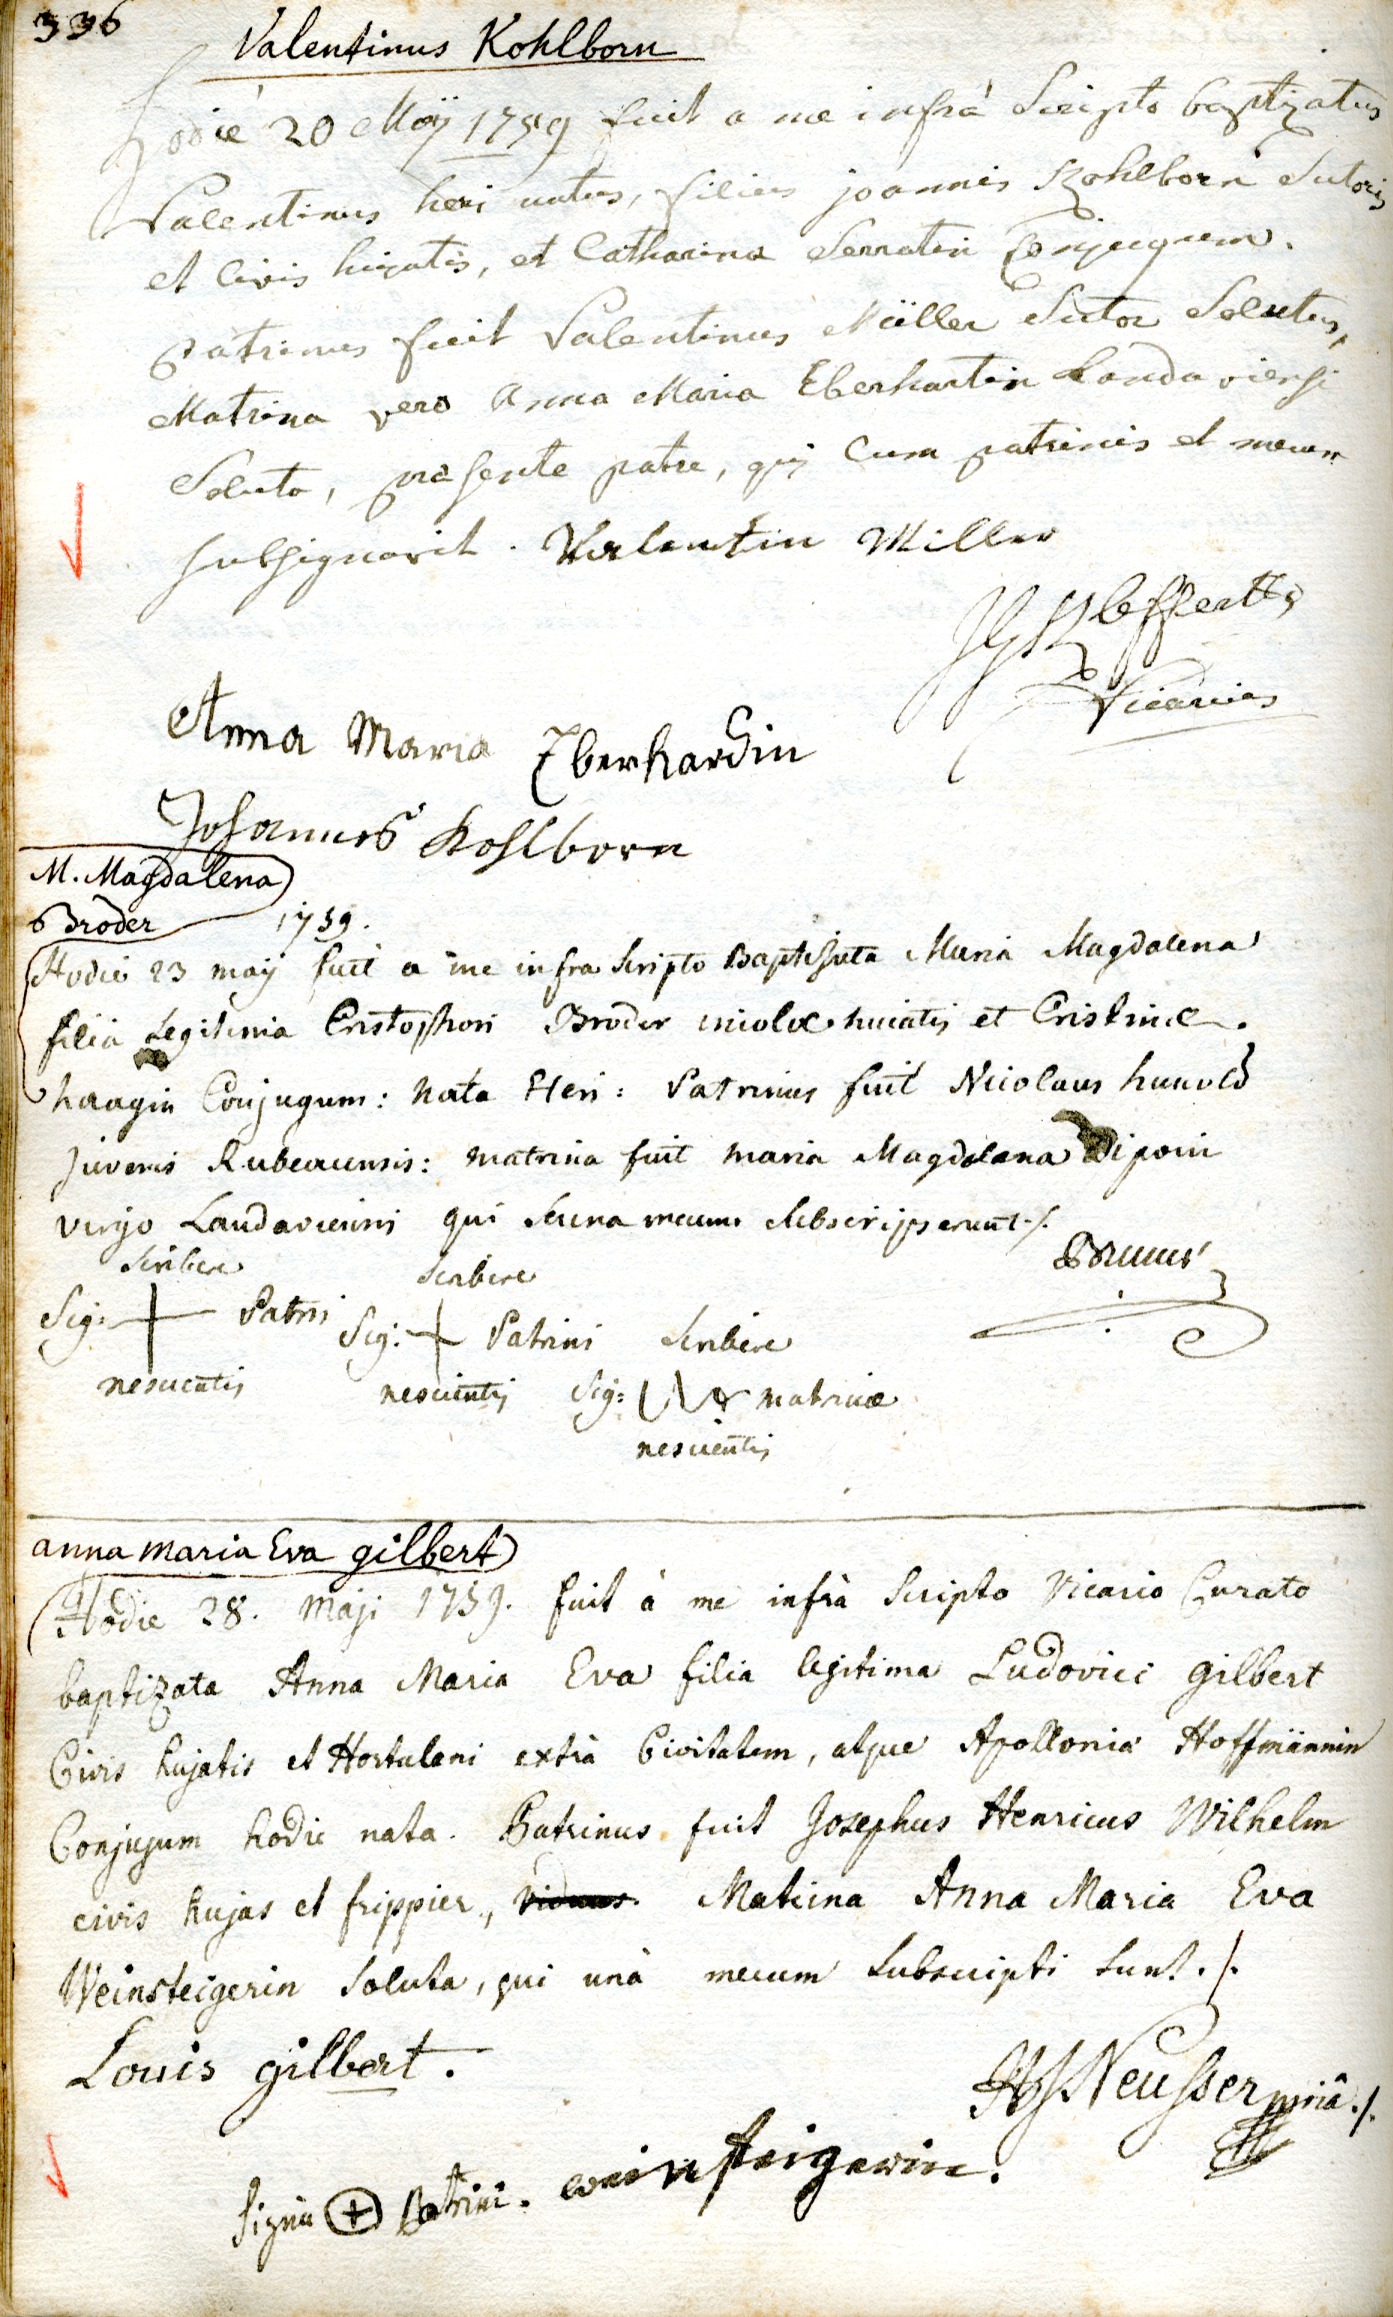 336
Valentinus Kohlborn
Hodie 20 Maÿ 1759 fuit a me infrà Scripto baptizatus
Valentinus heri natus, filius joannis Kohlborn Sutoris
et Civis hujatis, et Catharina Serratin Conjugum.
patrinus fuit Valentinus Müller Sutor Solutus,
Matrina vero Anna Maria Eberhartin Landaviensi
Soluta, præsente patre, qui Cum patrinis et mecum
subsignavit. Valentin Miller
Vicarius
Anna Maria Eberhardin
Johannes Kohlborn
M. Magdalena
Bröder
1759.
Hodie 23 maÿ fuit a me infra scripto Baptisata Maria Magdalena
filia Legitima Cristophori Broder incolæ huiatis et Cristinæ
haagin Conjugum: Nata Heri: Patrinus fuit Nicolaus hunold
juvenis : matrina fuit maria Magdalena
virgo Landaviensis qui mecum subscripserunt ./.
scribere scribere
Sig: + Patris Sig: + Patrini scribere
nescientis nescientis Sig: matrinæ
nescientis
anna maria Eva gilbert
Hodie 28. Maji 1759. fuit à me infrà Scripto Vicario Curato
baptizata Anna Maria Eva filia legitima Ludovici gilbert
Civis hujatis et Hortulani extrà Civitatem, atque Apollonia Hoffmännin
Conjugum hodie nata. Patrinus fuit Josephus Henricus Wilhelm
civis hujas et frippier, viduus. Matrina Anna Maria Eva
Weinsteigerin Soluta, qui unà mecum Subscripti sunt ./.
Louis gilbert.
Neusser mriâ ./.
signū + Patrini. weinsteigerin.